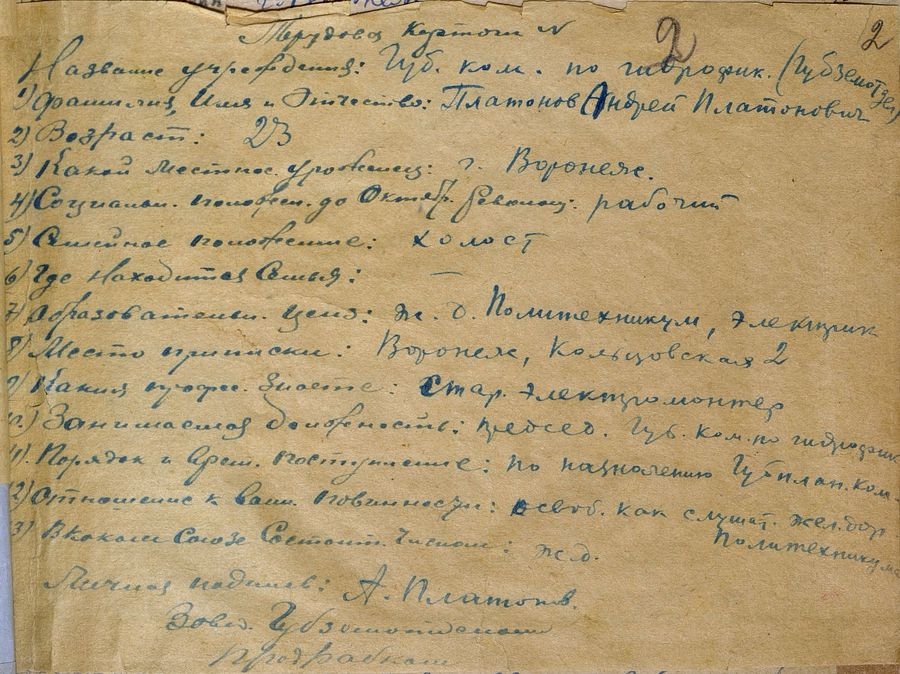 Трудовая карточка N 2 2
Название учреждения: Губ. ком. по гидрофик. (Губземотдел)
1) Фамилия, Имя и Отчество: Платонов Андрей Платонович
2) Возраст: 23
3) Какой местнос. уроженец: г. Воронеж.
4) Социальн. полож. до Октябр. революц: рабочий
5) Семейное положение: холост
6) Где находится семья: —
7) Образовательн. ценз: ж. д. Политехникум, электрик
8) Место приписки: Воронеж, Кольцовская 2
9) Какия профес. знаете: Стар. электромонтер
10.) Занимаемая должность: председ. Губ. ком. по гидрофик
11). Порядок и врем. поступление: по назначению Губплан. ком-
12) Отношение к воин. повинности: освоб. как слушат. жел. дор
Политехникума
13) В каком союзе состоит. членом: ж. д.
Личная подпись: А. Платонов.
Зав. Губземотделом